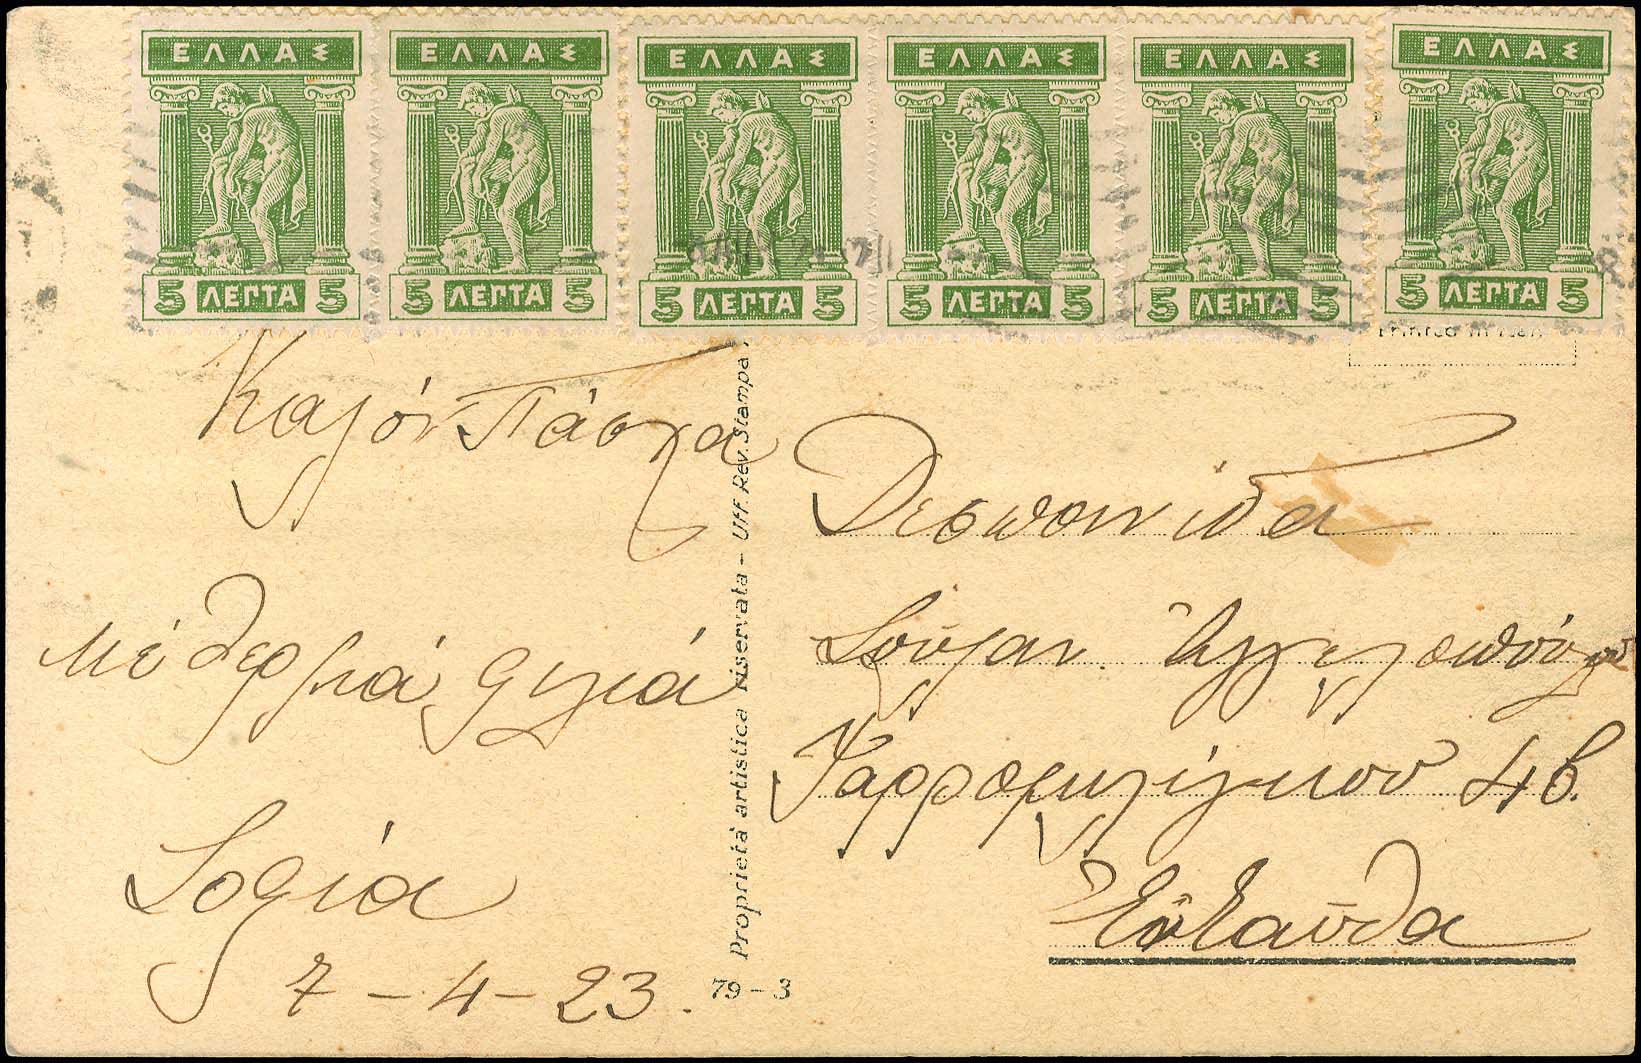 ΕΛΛΑΣ ΕΛΛΑΣ ΕΛΛΑΣ ΕΛΛΑΣ ΕΛΛΑΣ ΕΛΛΑΣ
5 ΛΕΠΤΑ 5 5 ΛΕΠΤΑ 5 5 ΛΕΠΤΑ 5 5 ΛΕΠΤΑ 5 5 ΛΕΠΤΑ 5 5 ΛΕΠΤΑ 5
Printed in
Καλόν Πάσχα
μέ θερμά φιλιά
Σοφία
7-4-23.
Proprietà artistica riservata - Uff. Rev. Stampa
79-3
Δεσποινίδα
Σούλαν Ἀγγελοπούλου
4β.
Ἐνταῦθα